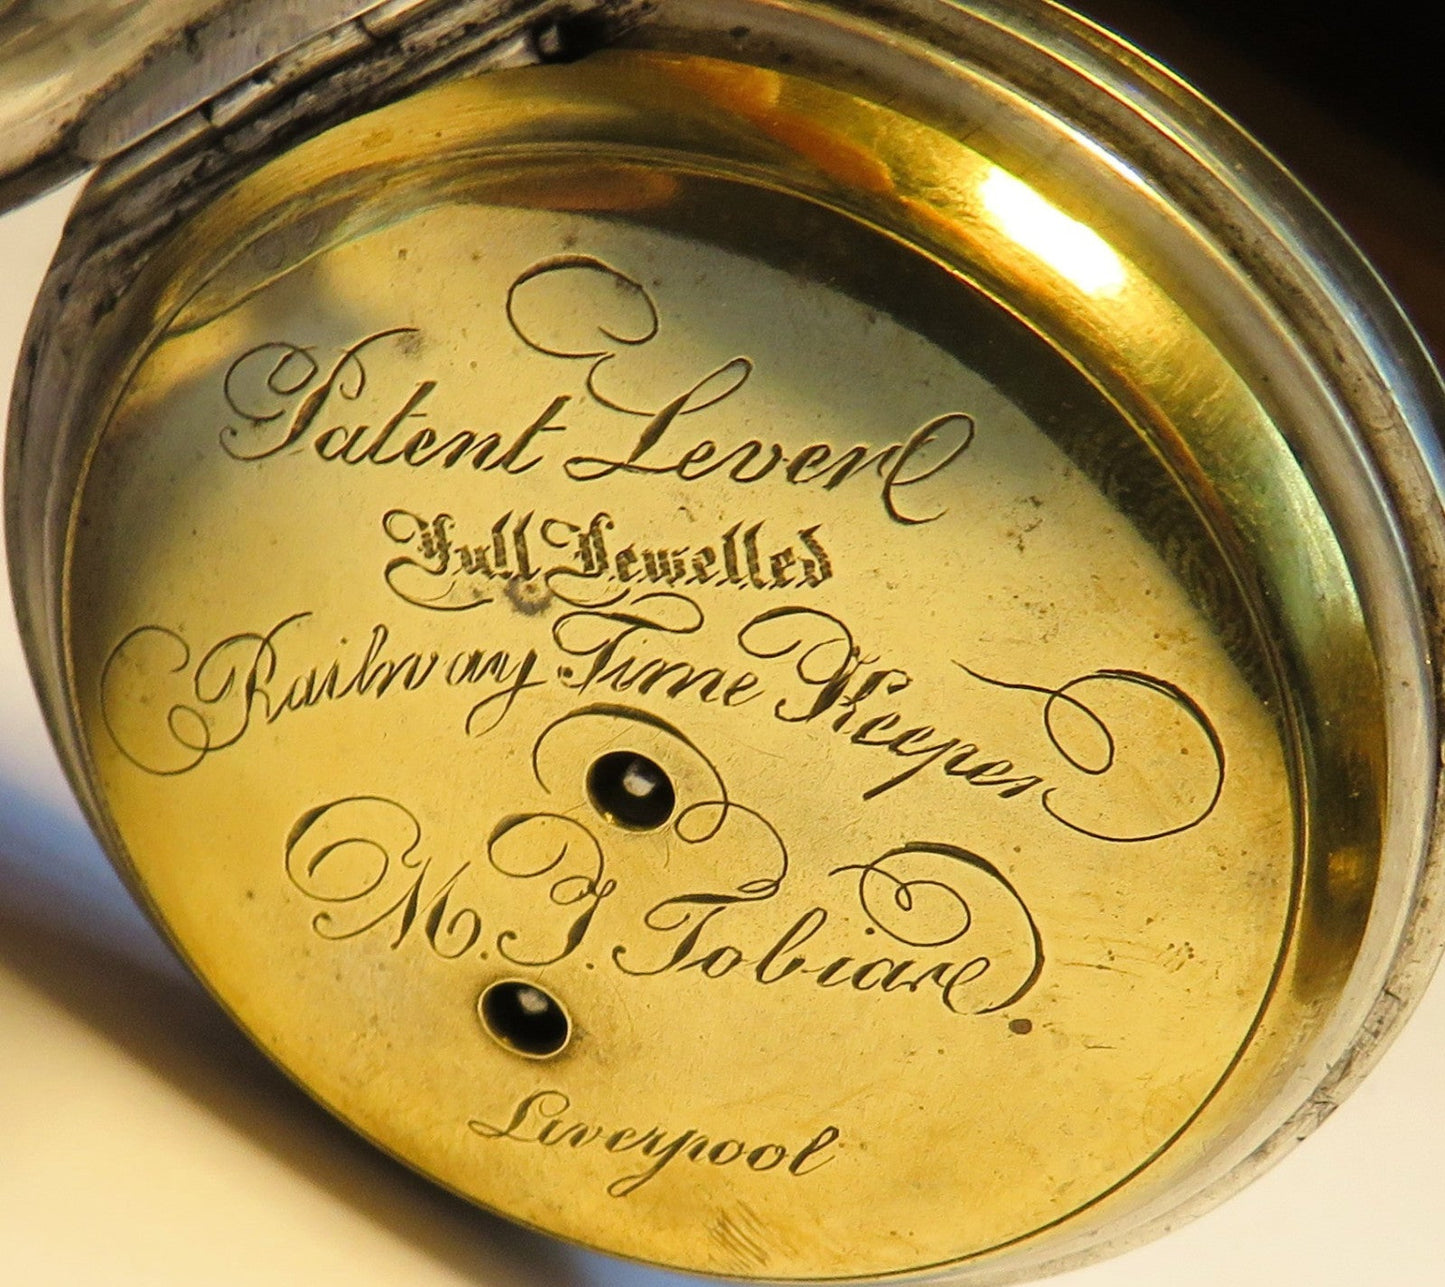 Patent Lever
Full Jewelled
Railway Time Keeper
M. I. Tobias.
Liverpool